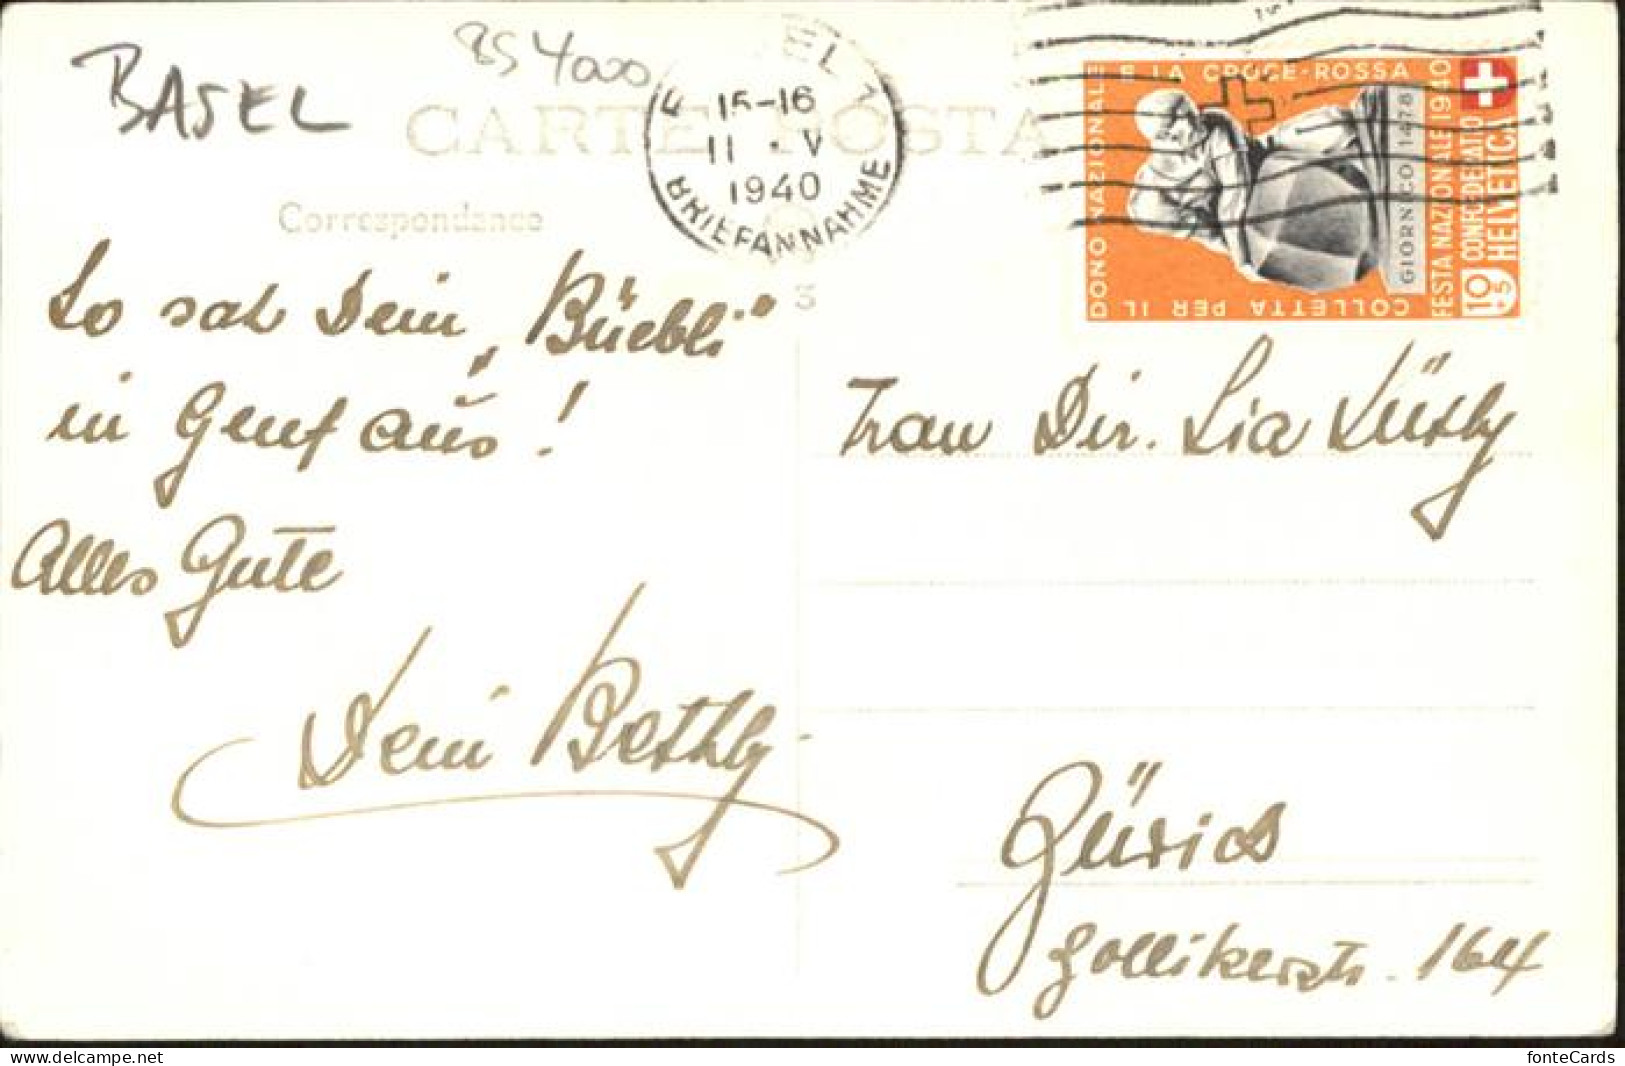 BASEL
BS 4000
CARTE POSTA
Correspondance
15-16
11 · V
1940
BRIEFANNAHME
DONO NAZIONALE E LA CROCE-ROSSA
COLLETTA PER IL
GIORNICO 1478
FESTA NAZIONALE 1940
CONFEDERATO
HELVETICA
10+5
So sah Dein „Büebli"
in Genf aus!
Alles Gute
Dein Bethly
Frau Dir. Lia Lüthy
Zürich
Zollikerstr. 164
fonteCards